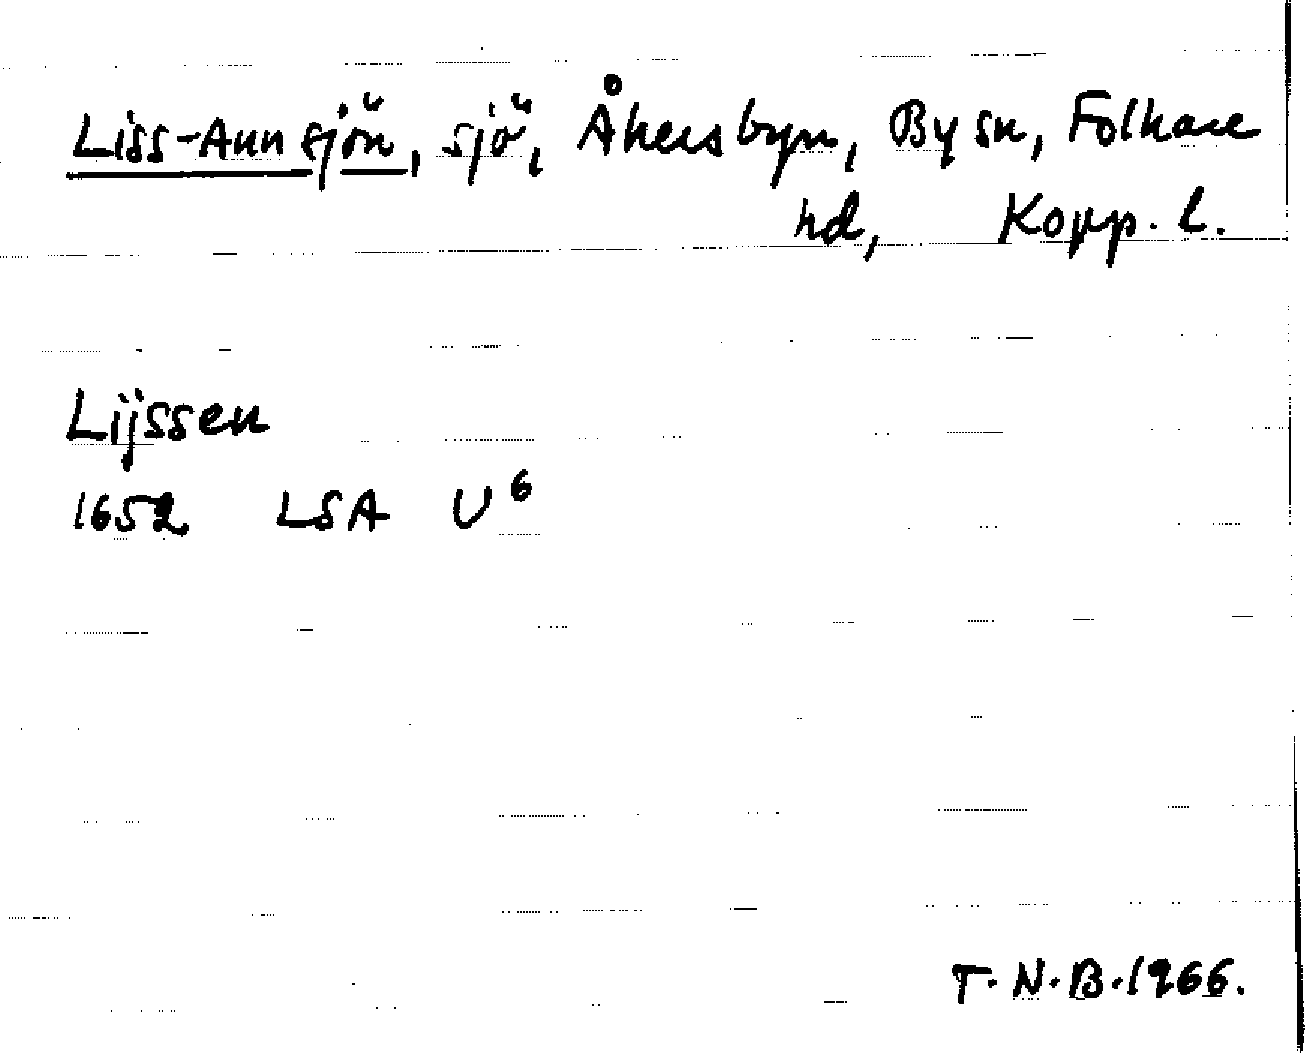 Liss-Annsjön, sjö, Åkersbyn, By sn, Folkare
hd, Kopp. l.
Lijssen
1652 LSA U⁶
T.N.B.1966.